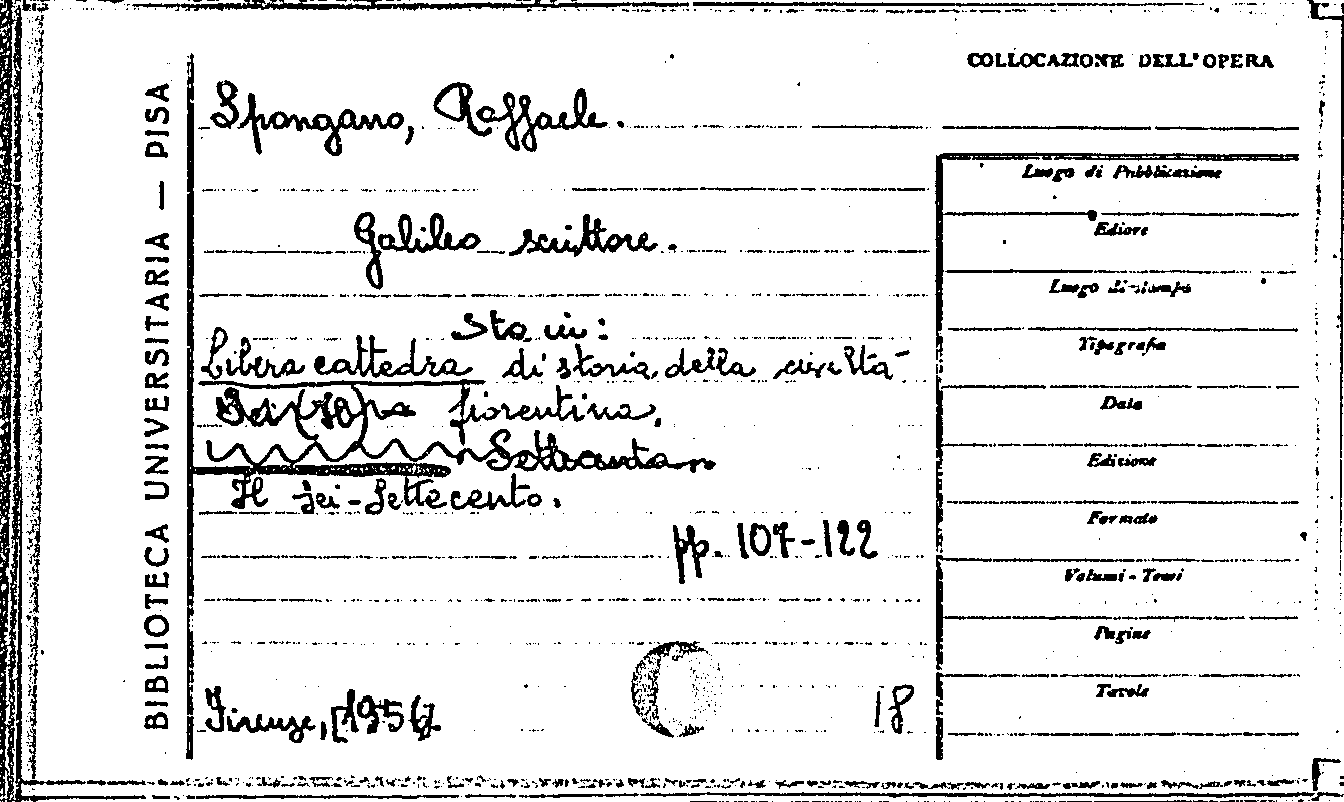 BIBLIOTECA UNIVERSITARIA — PISA
COLLOCAZIONE DELL'OPERA
Spongano, Raffaele.
Galileo scrittore.
Sta in:
Libera cattedra di storia della civiltà
fiorentina.
Settecento
Il Sei-Settecento.
pp. 107-122
Firenze, [1956]
18
Luogo di Pubblicazione
Ediore
Luogo di stampa
Tipografia
Data
Edizione
Formato
Volumi - Tomi
Pagine
Tavole